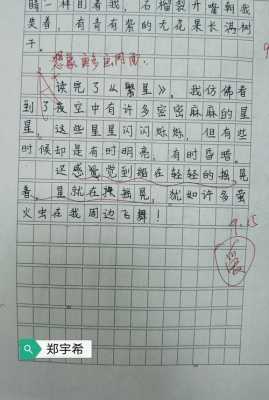 睛一样盯着我，石榴裂开嘴朝我
笑着，有青有紫的无花果长满树
干。
想象
读完了《繁星》。我仿佛看
到了夜空中有许多密密麻麻的星
星。这些星星闪闪烁烁，但有些
时候却是有时明亮，有时昏暗。
还感觉到船在轻轻的摇晃
着，星就在摇摇晃，犹如许多萤
火虫在我周边飞舞！
9.15
郑宇希